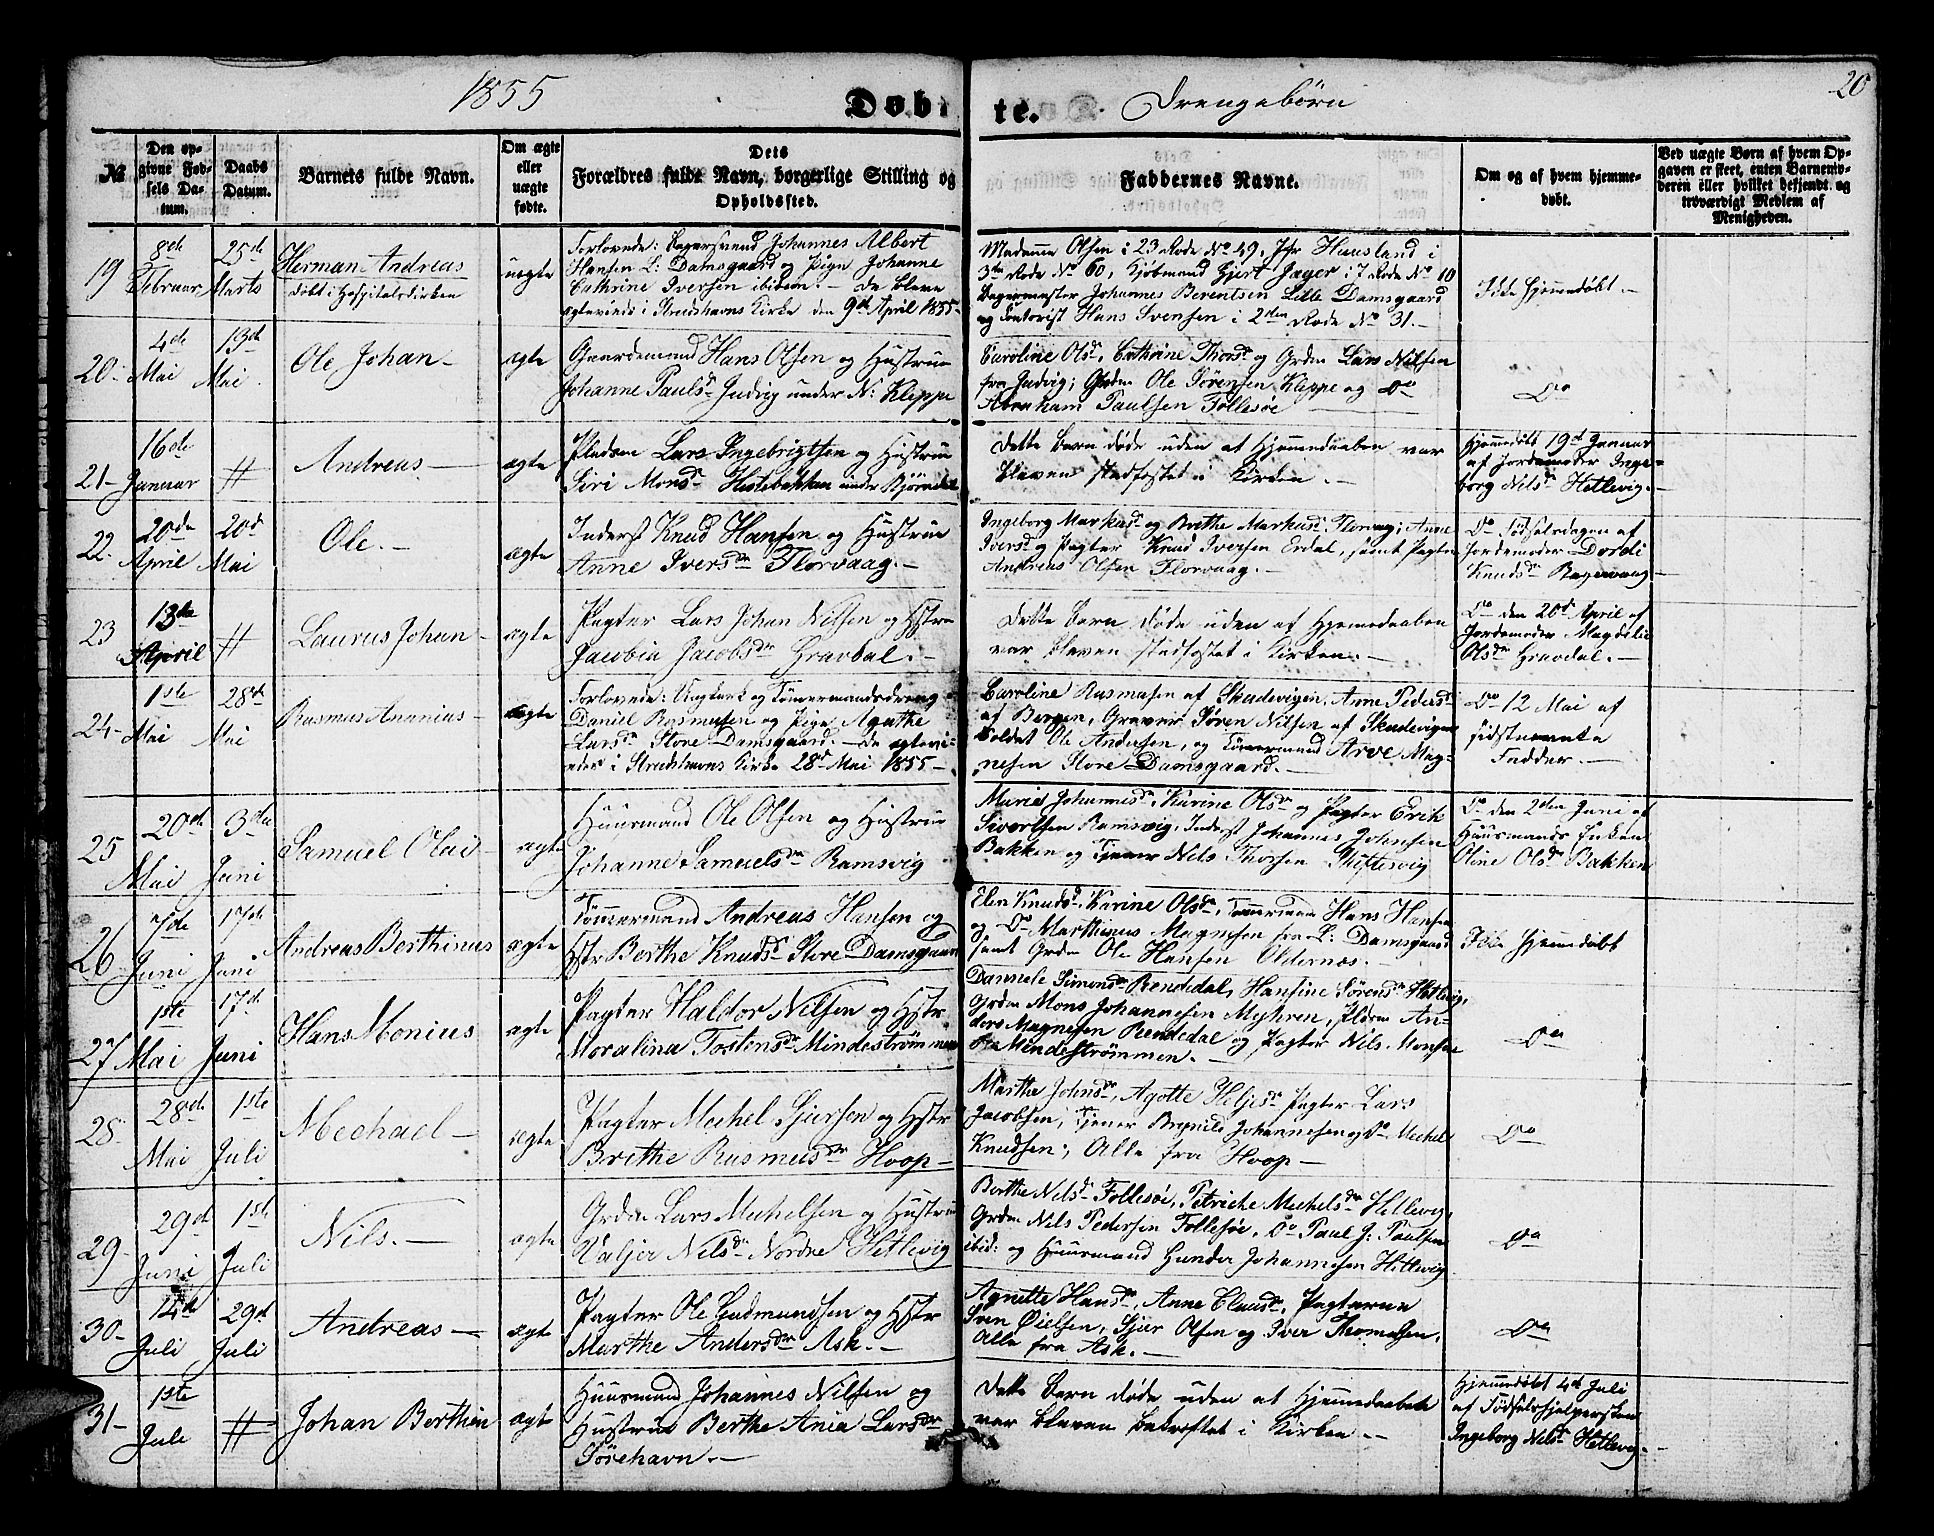 1855
Døbte.
Drengebørn
20
№
Den op-
givne Fød-
sels Da-
tum.
Daabs
Datum.
Barnets fulde Navn.
Om ægte
eller
uægte
fødte.
Dets
Forældres fulde Navn, borgerlige Stilling og
Opholdssted.
Faddernes Navne.
Om og af hvem hjemme-
døbt.
Ved uægte Børn af hvem Op-
gaven er skeet, enten Barnemo-
deren eller hvilket bekjendt og
troværdigt Medlem af
Menigheden.
19
8de
Februar
25de
Marts
Herman Andreas
døbt i Hospitalskirken
uægte
Forlovede: Bagersvend Johannes Albert
Hansen L: Damsgaard og Pigen Johanne
Cathrine Iversen ibidem. – De bleve
ægteviede i Strudshavns Kirke den 9de April 1855.
Madamme Olsen i 23 Rode No 49, Jfr Huusland i
3die Rode No 60, Kjøbmand Gjert Jager i 7 Rode No 10
Bagermester Johannes Berentsen Lille Damsgaard
og Contorist Hans Svensen i 2den Rode No 31.
Ikke hjemmedøbt.
20
4de
Mai
13de
Mai
Ole Johan
ægte
Gaardmand Hans Olsen og Hustrue
Johanne Paulsdr Judvig under N: Kleppe
Caroline Olsd., Cathrine Thorsd og Grdm Lars Nilsen
fra Judvig; Grdm Ole Sørensen Kleppe og Do
Abraham Paulsen Follesøe
Do
21
16de
Januar
#
Andreas
ægte
Pladsm Lars Ingebrigtsen og Hustrue
Siri Monsd. Hestebakken under Bjørndal
Dette Barn døde uden at Hjemmedaaben var
bleven stadfæstet i Kirken.
Hjemmedøbt 19de Januar
af Jordemoder Inge-
borg Nilsdr Hetlevig.
22.
20de
April
20de
Mai
Ole.
ægte
Inderst Knud Hansen og Hustrue
Anne Iversdr Florvaag.
Ingeborg Markusd og Brithe Markusd Florvaag; Anne
Iversd og Pagter Knud Iversen Erdal, samt Pagter
Andreas Olsen Florvaag.
Do Fødselsdagen af
Jordemoder Dordi
Knudsdr
23
13de
April
#
Laurus Johan
ægte
Pagter Lars Johan Nilsen og Hstru
Jacobia Jacobsdr Gravdal.
Dette Barn døde uden at Hjemmedaaben
var bleven stadfæstet i Kirken.
Do den 20de April af
Jordemoder Magdeli
Olsdr Gravdal.
24
1ste
Mai
28de
Mai
Rasmus Ananias
ægte
Forlovede: Ungkarl og Tømmermandsdreng
Daniel Rasmusen og Pige Agathe
Larsdr Store Damsgaard. – De ægtevi-
edes i Strudshavns Kirke 28de Mai 1855
Caroline Rasmusen af Skudevigen, Anne Pedersd
af Bergen, Graver Søren Nilsen af Skudevigen
Soldat Ole Andersen, og Tømmermand Arve Mag-
nesen Store Damsgaard.
Do 12 Mai af
sidstnævnte
Fadder.
25
20de
Mai
3die
Juni
Samuel Olai
ægte
Huusmand Ole Olsen og Hustrue
Johanne Samuelsdr Ramsvig
Marie Johannesdr, Karine Olsdr og Pagter Erik
Sivertsen Ramsvig, Inderst Johannes Johnsen
Bakken og Tjener Nils Thorsen
Do den 2den Juni af
Huusmands Enken
Oline Olsdr Bakken
26
7de
Juni
17de
Juni
Andreas Berthinus
ægte
Tømmermand Andreas Hansen og
Hstr Berthe Knudsdr Store Damsgaard
Elen Knudsd, Karine Olsdr, Tømmermænd Hans Hansen
og Do Marthinus Magnesen fra L: Damsgaard
samt Grdm Ole Hansen Oldernæs.
Ikke hjemmedøbt
27
1ste
Mai
17de
Juni
Hans Monius
ægte
Pagter Haldor Nilsen og Hstr
Moralina Tostensdr Mindestrømmen
Dannele Simonsdr Bendedal, Hansine Sørensdr Hetlevig,
Grdm Mons Johannesen Myhren, Pldsm An-
ders Magnesen Bendedal og Pagter Nils Monsen
Mindestrømmen.
Do
28
28de
Mai
1ste
Juli
Mechael
ægte
Pagter Mechel Sjursen og Hstr
Brithe Rasmusdr Hoop
Marthe Johnsdr, Agotte Heljesdr Pagter Lars
Jacobsen, Tjener Brynild Johannesen og Do Mechel
Knudsen; Alle fra Hoop
Do
29
29de
Juni
1ste
Juli
Nils.
ægte
Grdm Lars Mechelsen og Hustrue
Valjer Nilsdr Nordre Hetlevig
Berthe Nilsd. Follesøe, Petriche Mechelsdr Hetlevig,
Grdm Nils Pedersen Follesøe, Do Paul J: Paulsen
ibid: og Huusmand Gunder Johannesen Hetlevig
Do
30
14de
Juli
29de
Juli
Andreas
ægte
Pagter Ole Gudmundsen og Hstr
Marthe Andersdr Ask.
Agnette Hansdr, Anne Clausdr, Pagterne
Sven Øielsen, Sjur Olsen og Iver Thomasen,
Alle fra Ask.
Do
31
1ste
Juli
#
Johan Berthin
ægte
Huusmand Johannes Nilsen og
Hustrue Berthe Ania Larsdr
Sørehavn.
Dette Barn døde uden at Hjemmedaaben
var bleven bekræftet i Kirken.
Hjemmedøbt 4de Juli
af Fødselshjelpersken
Ingeborg Nilsd. Hetlevig.